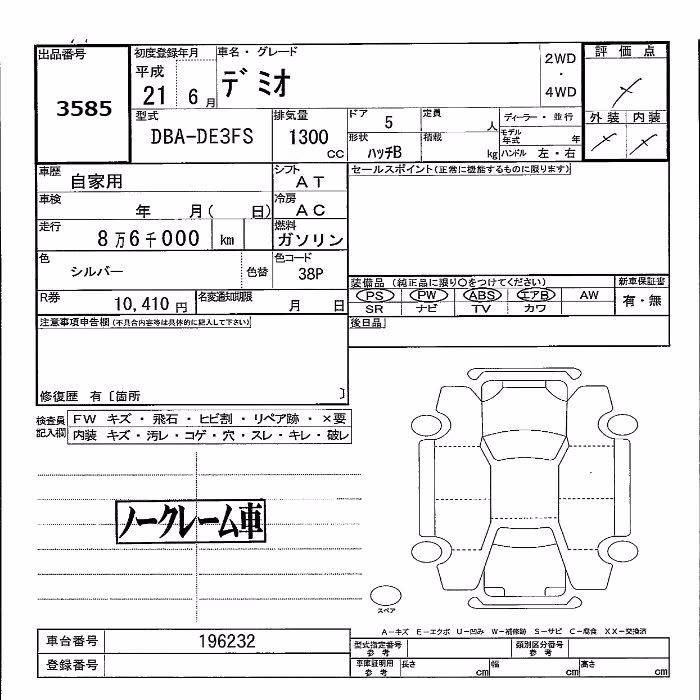 出品番号 初度登録年月 車名・グレード 2WD・4WD 評価点
3585 平成 21 6月 デミオ
型式 排気量 ドア 定員 人 ディーラー・並行 外装 内装
DBA-DE3FS 1300 CC 5
形状 ハッチB 積載 kg モデル年式 年 ハンドル 左・右
車歴 自家用 シフト AT セールスポイント(正常に機能するものに限ります)
車検 年 月( 日) 冷房 AC
走行 8万6千000 km 燃料 ガソリン
色 シルバー 色替 色コード 38P
装備品 (純正品に限り○をつけてください) 新車保証書
PS PW ABS エアB AW 有・無
SR ナビ TV カワ
R券 10,410円 名変通知期限 月 日
注意事項申告欄(不具合内容等は具体的に記入して下さい) 後日品
修復歴 有〔箇所 〕
検査員記入欄 FW キズ・飛石・ヒビ割・リペア跡・×要
内装 キズ・汚レ・コゲ・穴・スレ・キレ・破レ
ノークレーム車
スペア
A-キズ E-エクボ U-凹み W-補修跡 S-サビ C-腐食 XX-交換済
車台番号 196232 型式指定番号 参考 類別区分番号 参考
登録番号 車庫証明用 参考 長さ cm 幅 cm 高さ cm